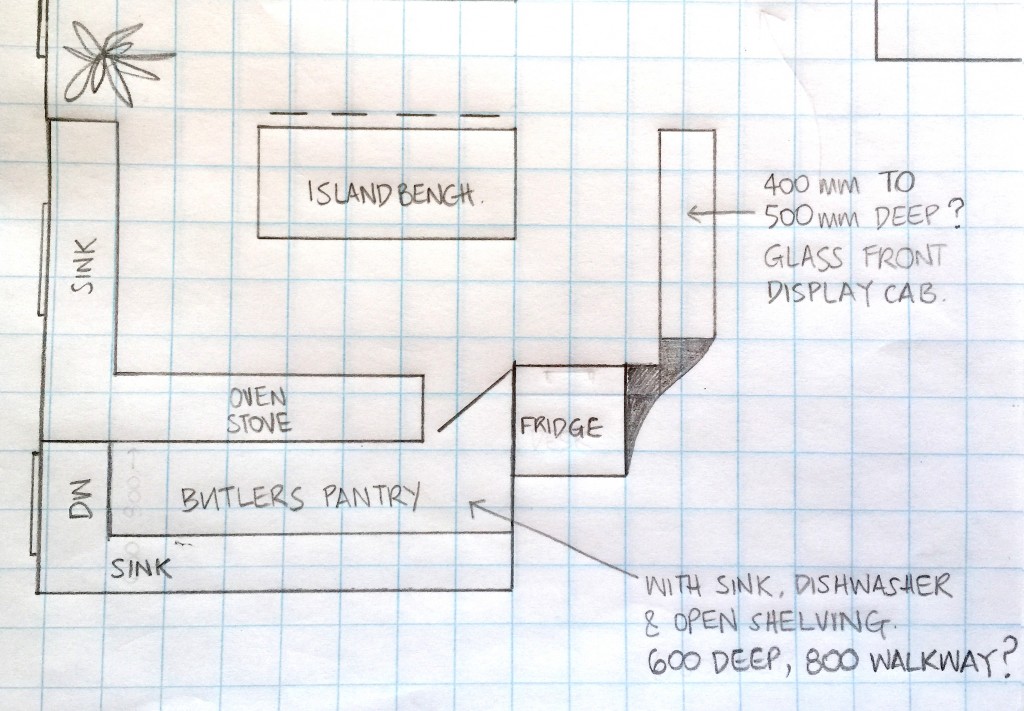 ISLAND BENCH.
400 mm TO
500 mm DEEP?
GLASS FRONT
DISPLAY CAB.
SINK
OVEN
STOVE
FRIDGE
DW
BUTLERS PANTRY
SINK
WITH SINK, DISHWASHER
& OPEN SHELVING.
600 DEEP, 800 WALKWAY?